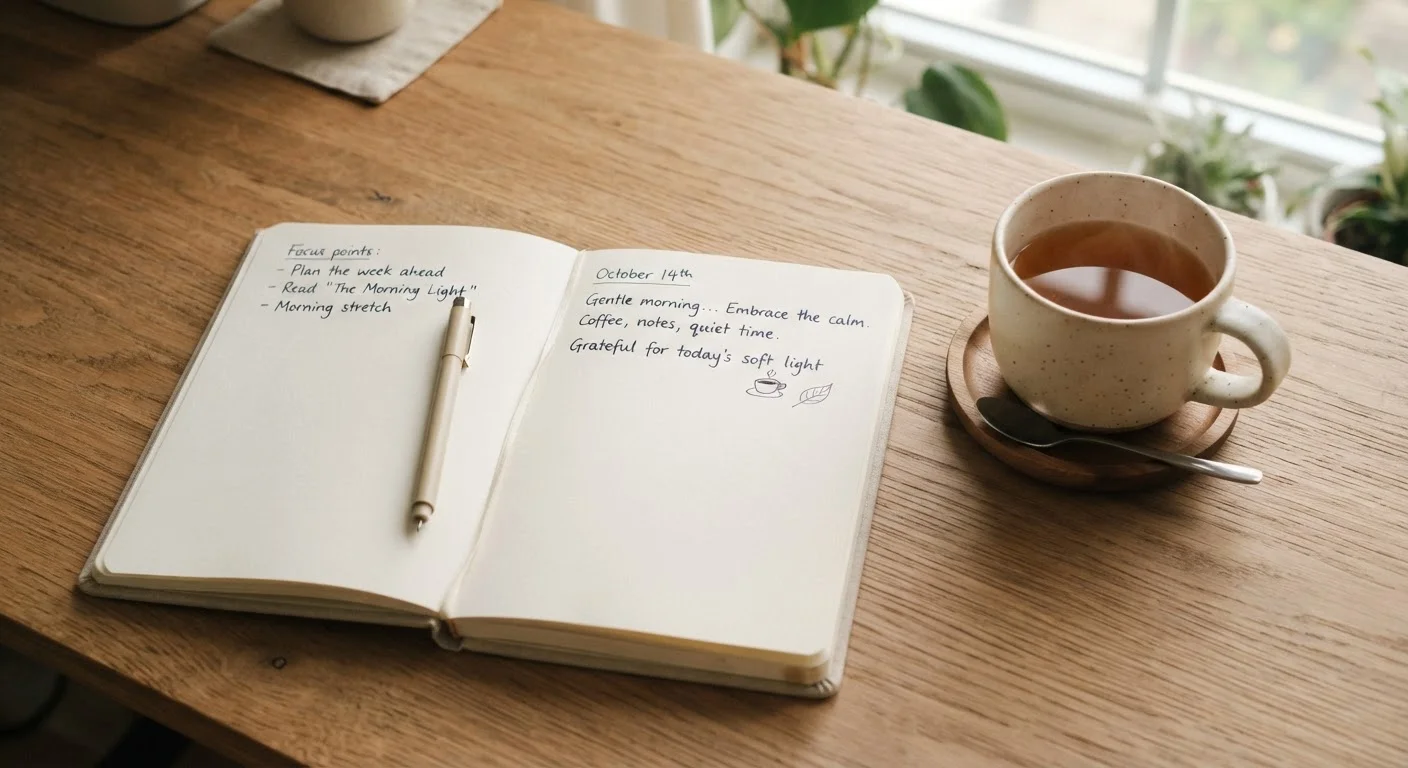 Focus points:
- Plan the week ahead
- Read "The Morning Light"
- Morning stretch
October 14th
Gentle morning... Embrace the calm.
Coffee, notes, quiet time.
Grateful for today's soft light